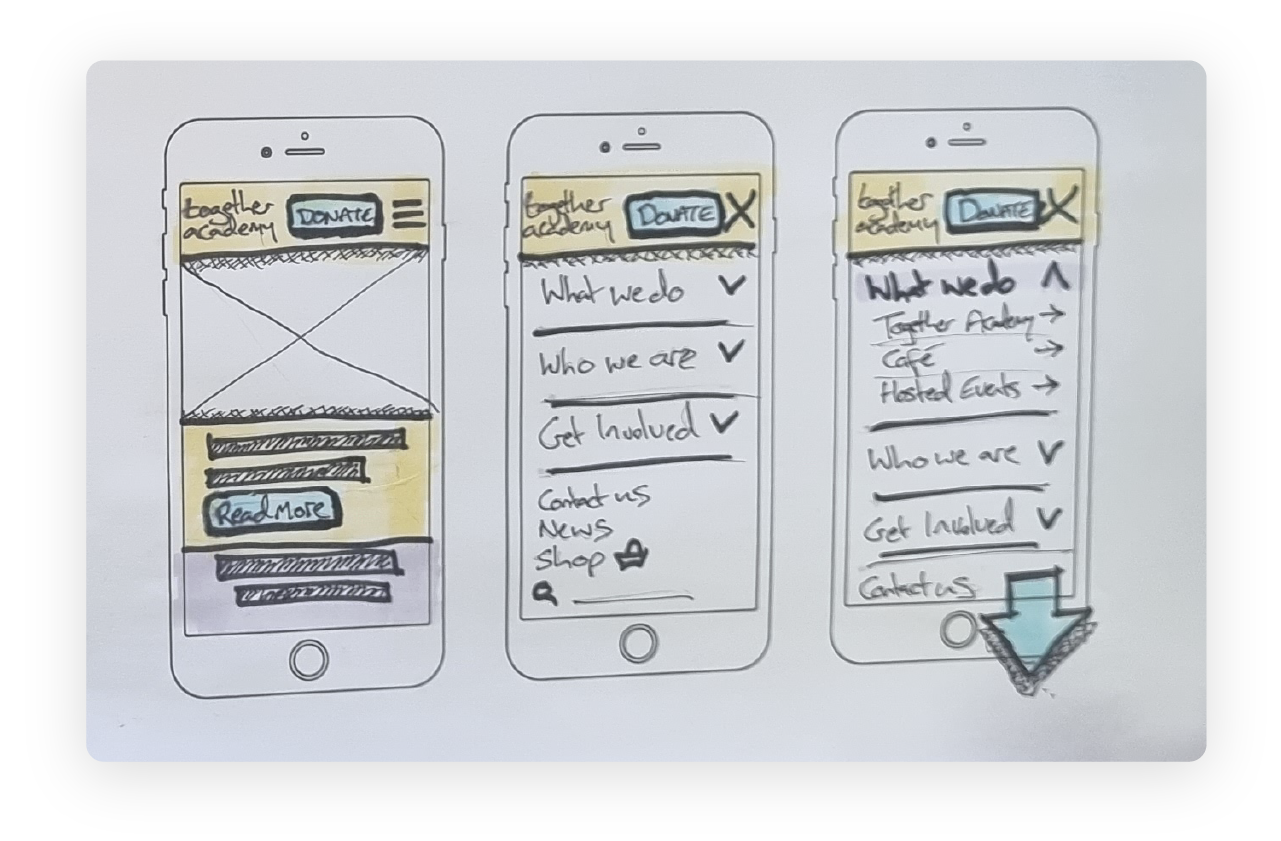 together
academy
DONATE
Read More
together
academy
DONATE
What we do
Who we are
Get Involved
Contact us
News
Shop
together
academy
DONATE
What we do
Together Academy
Café
Hosted Events
Who we are
Get Involved
Contact us